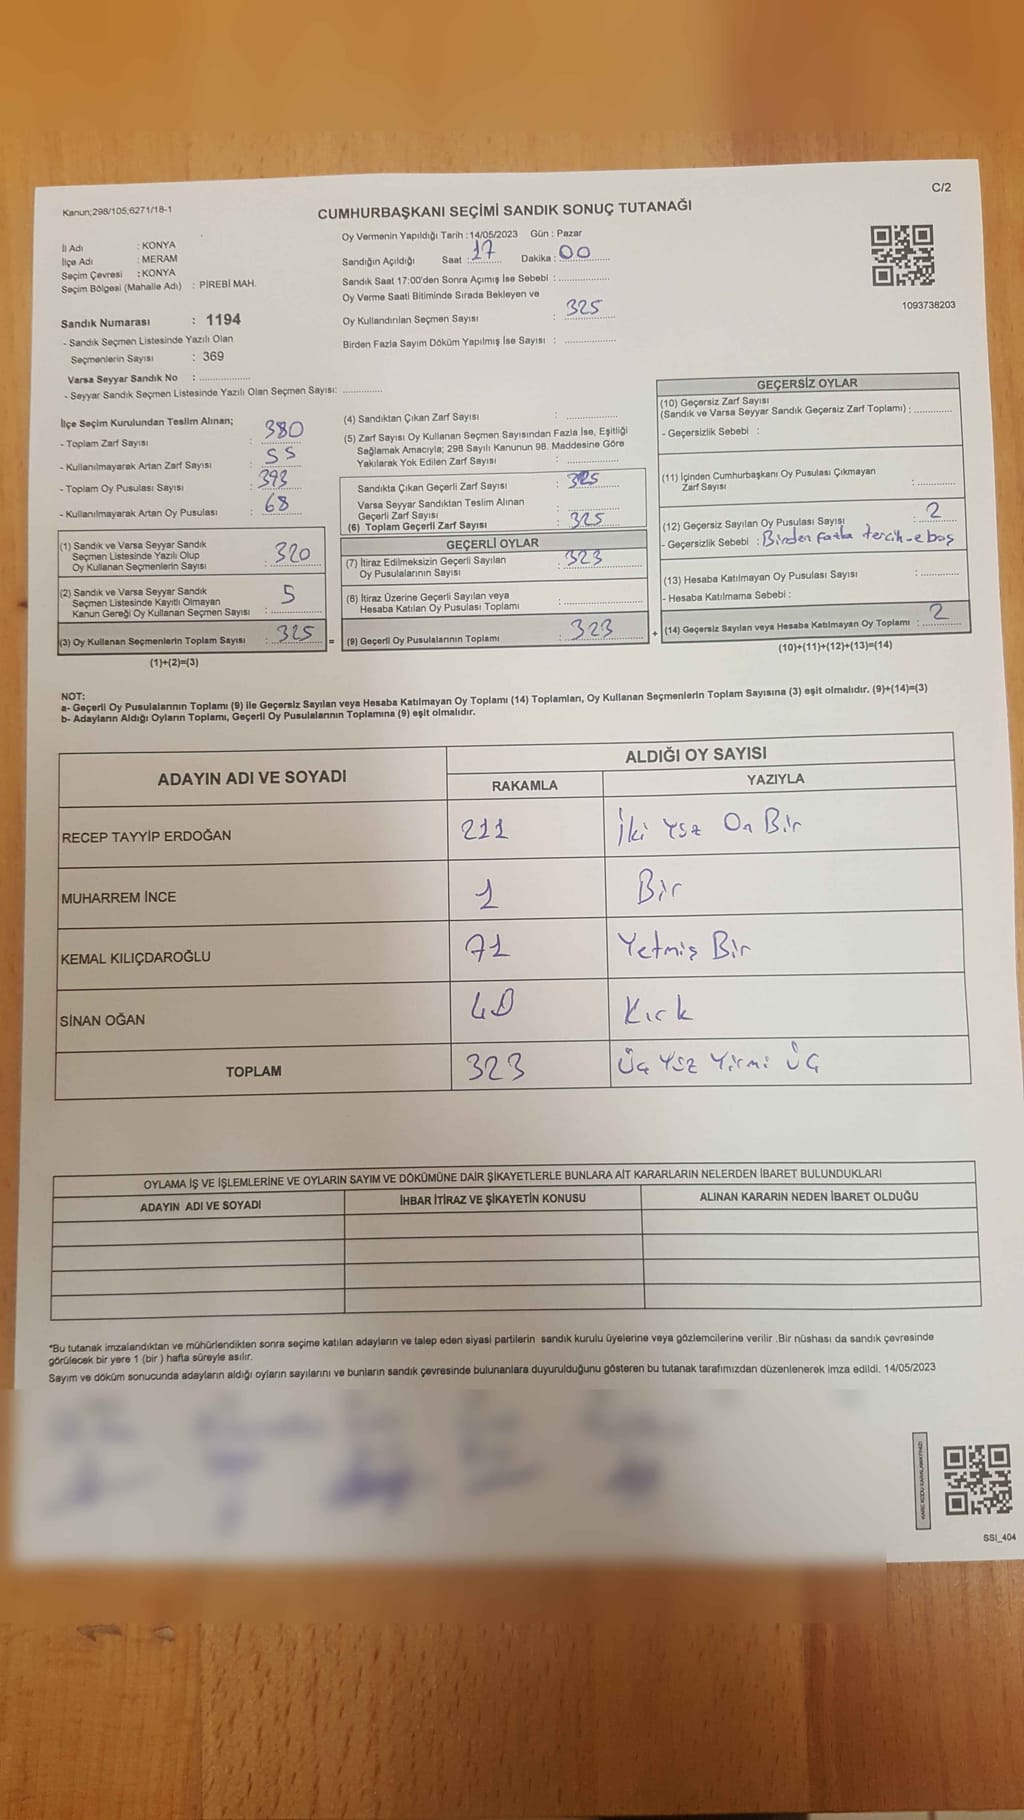 C/2
Kanun;298/105,6271/18-1
CUMHURBAŞKANI SEÇİMİ SANDIK SONUÇ TUTANAĞI
İl Adı : KONYA
İlçe Adı : MERAM
Seçim Çevresi : KONYA
Seçim Bölgesi (Mahalle Adı) : PİREBİ MAH.
Sandık Numarası : 1194
- Sandık Seçmen Listesinde Yazılı Olan
Seçmenlerin Sayısı : 369
Varsa Seyyar Sandık No : ..................
- Seyyar Sandık Seçmen Listesinde Yazılı Olan Seçmen Sayısı: .............
Oy Vermenin Yapıldığı Tarih :14/05/2023 Gün : Pazar
Sandığın Açıldığı Saat : 17 Dakika : 00
Sandık Saat 17:00'den Sonra Açımış İse Sebebi : ..................
Oy Verme Saati Bitiminde Sırada Bekleyen ve
Oy Kullandırılan Seçmen Sayısı : 325
Birden Fazla Sayım Döküm Yapılmış İse Sayısı : ..................
1093738203
İlçe Seçim Kurulundan Teslim Alınan;
- Toplam Zarf Sayısı : 380
- Kullanılmayarak Artan Zarf Sayısı : 55
- Toplam Oy Pusulası Sayısı : 393
- Kullanılmayarak Artan Oy Pusulası : 68
(1) Sandık ve Varsa Seyyar Sandık
Seçmen Listesinde Yazılı Olup
Oy Kullanan Seçmenlerin Sayısı : 320
(2) Sandık ve Varsa Seyyar Sandık
Seçmen Listesinde Kayıtlı Olmayan
Kanun Gereği Oy Kullanan Seçmen Sayısı : 5
(3) Oy Kullanan Seçmenlerin Toplam Sayısı : 325 =
(1)+(2)=(3)
(4) Sandıktan Çıkan Zarf Sayısı : ..................
(5) Zarf Sayısı Oy Kullanan Seçmen Sayısından Fazla İse, Eşitliği
Sağlamak Amacıyla; 298 Sayılı Kanunun 98. Maddesine Göre
Yakılarak Yok Edilen Zarf Sayısı : ..................
Sandıkta Çıkan Geçerli Zarf Sayısı : 325
Varsa Seyyar Sandıktan Teslim Alınan
Geçerli Zarf Sayısı : ..................
(6) Toplam Geçerli Zarf Sayısı : 325
GEÇERLİ OYLAR
(7) İtiraz Edilmeksizin Geçerli Sayılan
Oy Pusulalarının Sayısı : 323
(8) İtiraz Üzerine Geçerli Sayılan veya
Hesaba Katılan Oy Pusulası Toplamı : ..................
(9) Geçerli Oy Pusulalarının Toplamı : 323 +
GEÇERSİZ OYLAR
(10) Geçersiz Zarf Sayısı
(Sandık ve Varsa Seyyar Sandık Geçersiz Zarf Toplamı) : .............
- Geçersizlik Sebebi :
(11) İçinden Cumhurbaşkanı Oy Pusulası Çıkmayan
Zarf Sayısı : .............
(12) Geçersiz Sayılan Oy Pusulası Sayısı : 2
- Geçersizlik Sebebi : Birden fazla tercih-e boş
(13) Hesaba Katılmayan Oy Pusulası Sayısı : .............
- Hesaba Katılmama Sebebi :
(14) Geçersiz Sayılan veya Hesaba Katılmayan Oy Toplamı : 2
(10)+(11)+(12)+(13)=(14)
NOT:
a- Geçerli Oy Pusulalarının Toplamı (9) ile Geçersiz Sayılan veya Hesaba Katılmayan Oy Toplamı (14) Toplamları, Oy Kullanan Seçmenlerin Toplam Sayısına (3) eşit olmalıdır. (9)+(14)=(3)
b- Adayların Aldığı Oyların Toplamı, Geçerli Oy Pusulalarının Toplamına (9) eşit olmalıdır.
ADAYIN ADI VE SOYADI ALDIĞI OY SAYISI
RAKAMLA YAZIYLA
RECEP TAYYİP ERDOĞAN 211 İki Yüz On Bir
MUHARREM İNCE 1 Bir
KEMAL KILIÇDAROĞLU 71 Yetmiş Bir
SİNAN OĞAN 40 Kırk
TOPLAM 323 Üç Yüz Yirmi Üç
OYLAMA İŞ VE İŞLEMLERİNE VE OYLARIN SAYIM VE DÖKÜMÜNE DAİR ŞİKAYETLERLE BUNLARA AİT KARARLARIN NELERDEN İBARET BULUNDUKLARI
ADAYIN ADI VE SOYADI İHBAR İTİRAZ VE ŞİKAYETİN KONUSU ALINAN KARARIN NEDEN İBARET OLDUĞU
*Bu tutanak imzalandıktan ve mühürlendikten sonra seçime katılan adayların ve talep eden siyasi partilerin sandık kurulu üyelerine veya gözlemcilerine verilir .Bir nüshası da sandık çevresinde
görülecek bir yere 1 (bir ) hafta süreyle asılır.
Sayım ve döküm sonucunda adayların aldığı oyların sayılarını ve bunların sandık çevresinde bulunanlara duyurulduğunu gösteren bu tutanak tarafımızdan düzenlenerek imza edildi. 14/05/2023
SSI_404